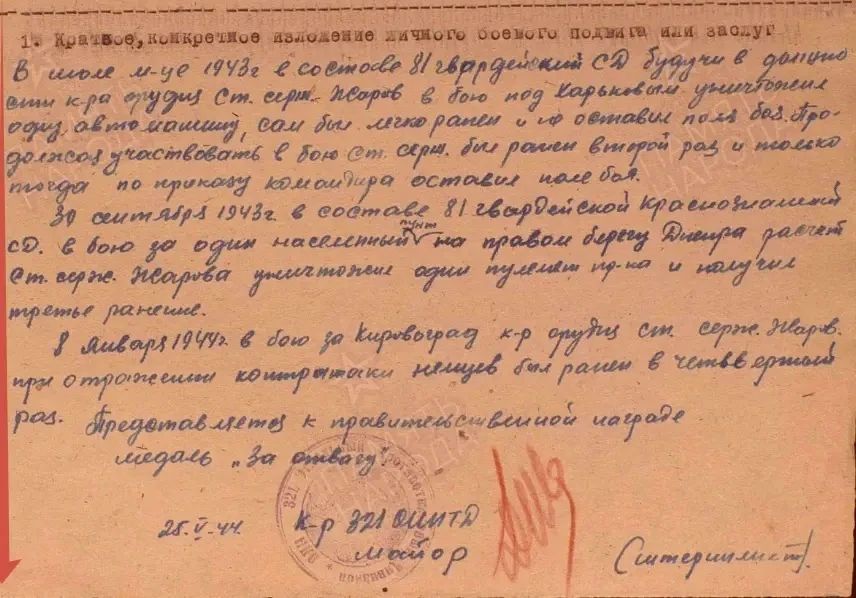 1. Краткое, конкретное изложение личного боевого подвига или заслуг
В июле м-це 1943г в составе 81 гвардейский СД будучи в должно
сти к-ра орудия Ст. серж. Жаров в бою под Харьковым уничтожил
одну автомашину, сам был легко ранен и не оставил поля боя. Про-
должая участвовать в бою Ст. серж. был ранен второй раз и только
тогда по приказу командира оставил поле боя.
30 сентября 1943г. в составе 81 гвардейской Краснознаменной
СД. в бою за один населенный пункт на правом берегу Днепра расчет
Ст. серж. Жарова уничтожил один пулемет пр-ка и получил
третье ранение.
8 января 1944г. в бою за Кировоград к-р орудия ст. серж. Жаров.
при отражении контратаки немцев был ранен в четвертый
раз. Представляется к правительственной награде
медаль „За отвагу".
25.V.44. К-р 321 ОИПТД
майор